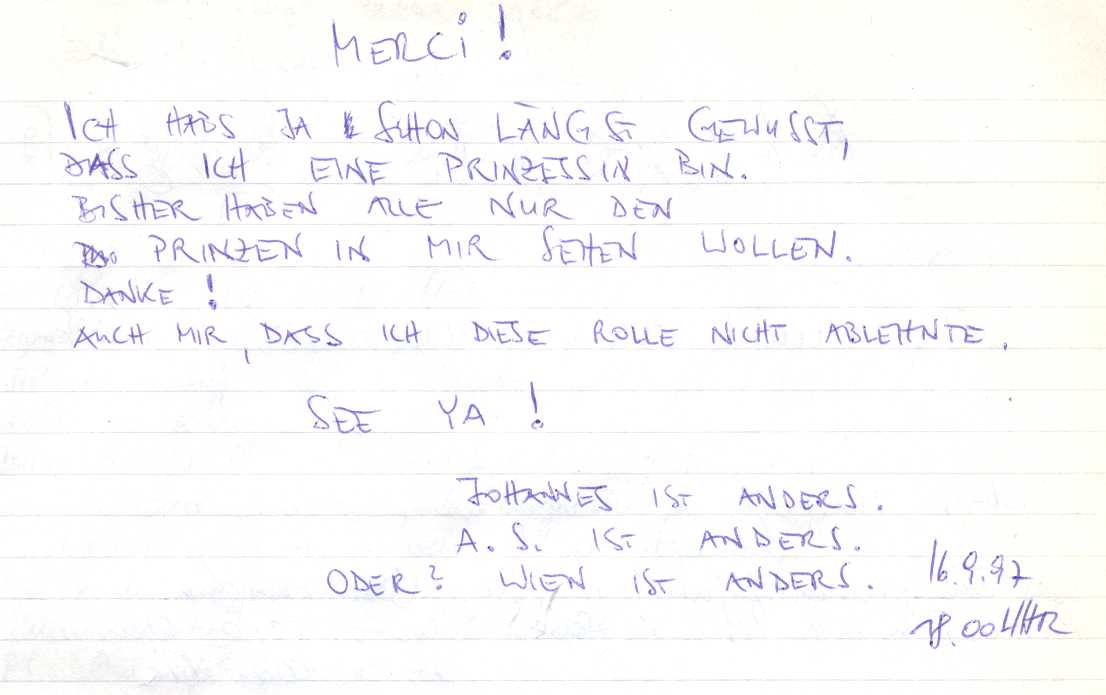 MERCI!
ICH HABS JA SCHON LÄNGST GEWUSST,
DASS ICH EINE PRINZESSIN BIN.
BISHER HABEN ALLE NUR DEN
PRINZEN IN MIR SEHEN WOLLEN.
DANKE!
AUCH MIR, DASS ICH DIESE ROLLE NICHT ABLEHNTE.
SEE YA!
JOHANNES IST ANDERS.
A.S. IST ANDERS.
ODER? WIEN IST ANDERS.
16.9.97
18.00 UHR